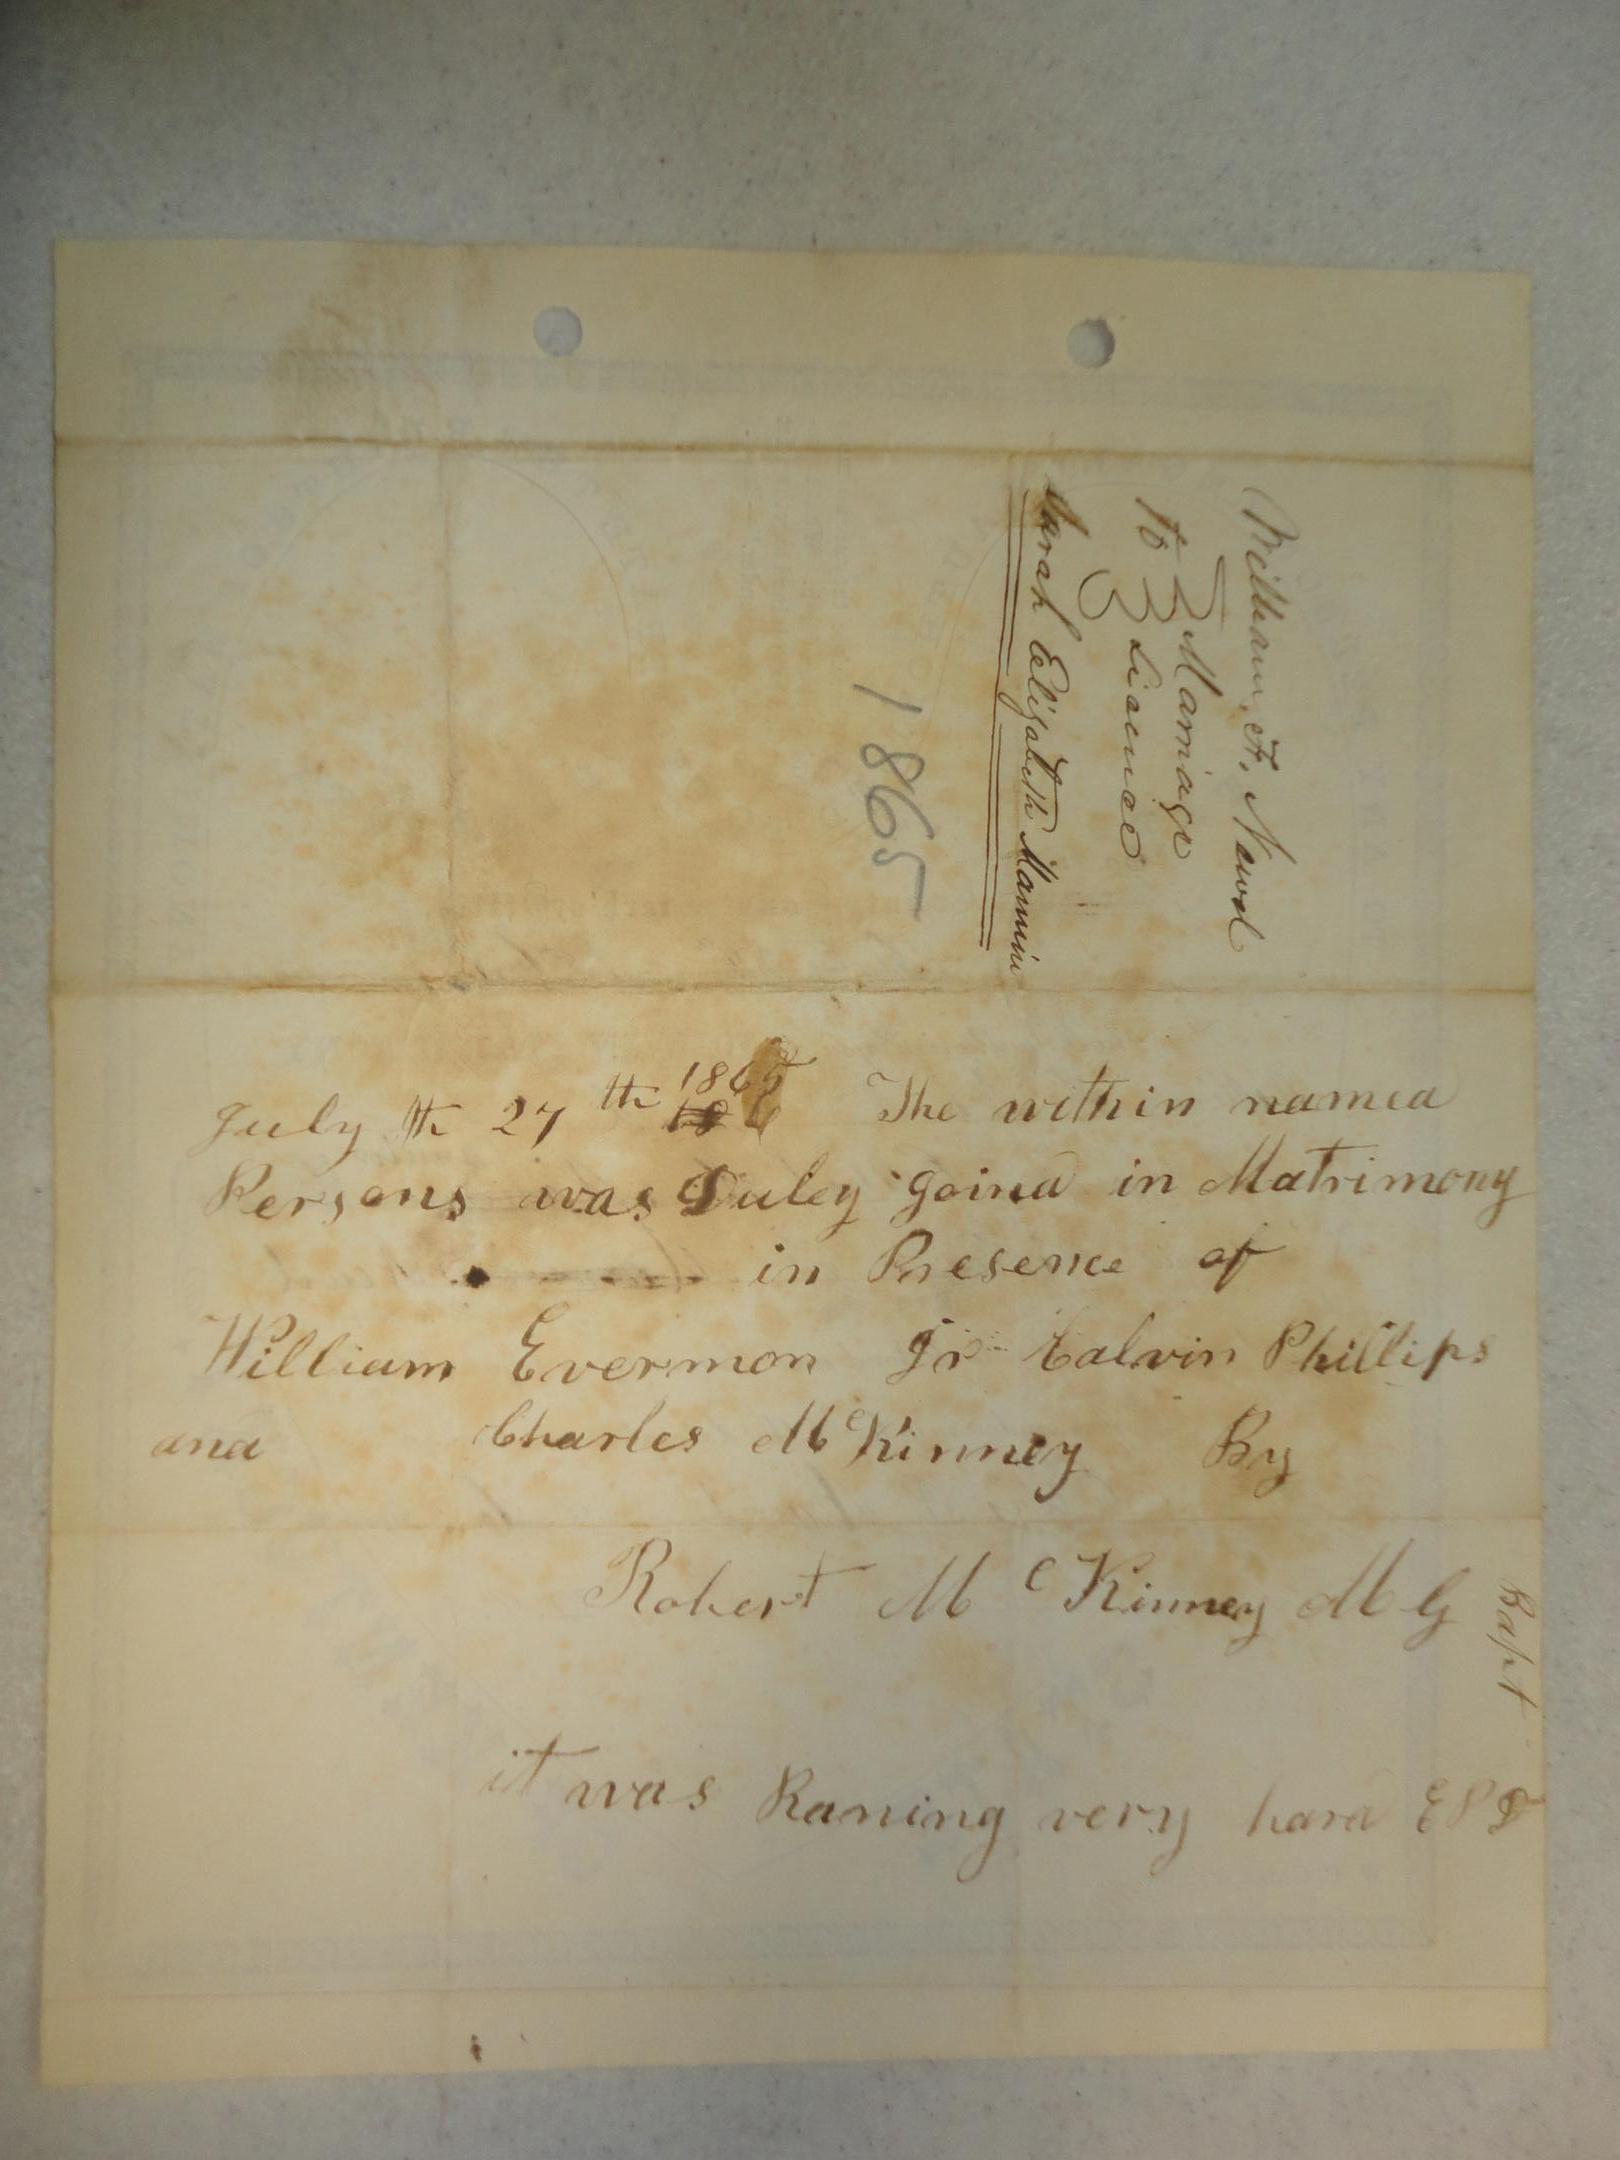 William F. Newol
to Marriage
Licence
Sarah Elizabeth Mannin
1865
July th 27th 1865 The within named
Persons was Duley goind in Matrimony
in Presence of
William Evermon Jr Calvin Phillips
and Charles McKinney By
Robert McKinney M G
Bapt
it was Raning very hard